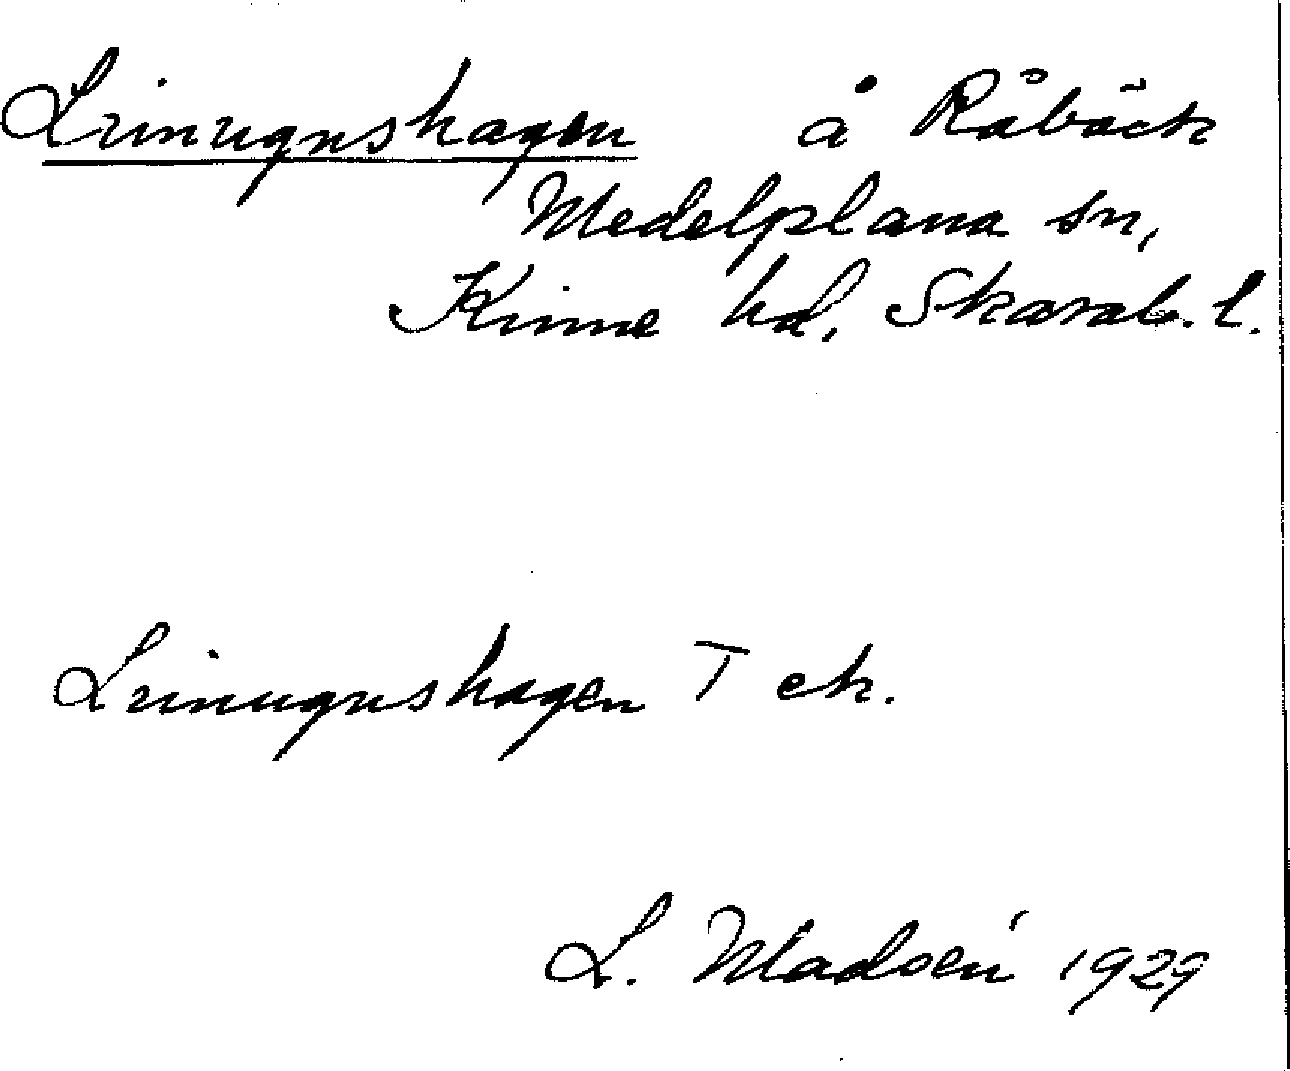 Linugnshagen å Råbäck
Medelplana sn,
Kinne hd, Skarab. l.
Linugnshagen T ek.
L. Madsén 1929